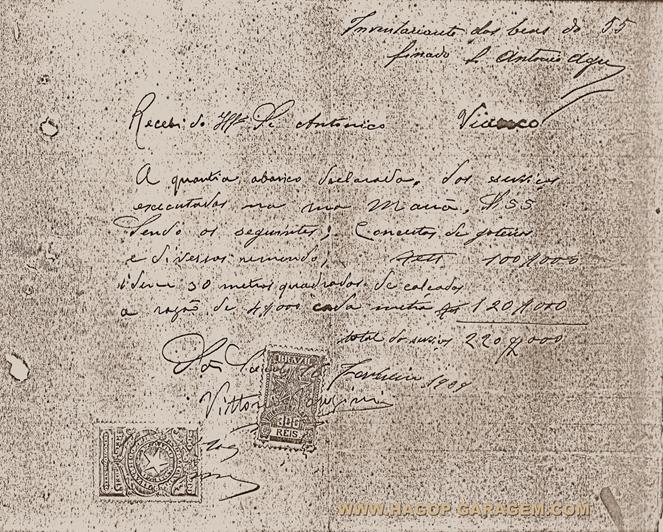 Inventariante dos bens do 55
finado S. Antonio
Recebi do Illº Sr Antonico Vianco
A quantia abaixo declarada, dos serviços
executados na rua Mauá, Nº 55
Sendo os seguintes; Concertos de goteiras
e diversos remendo, 100$000
idem 30 metros quadrados de calçadas
a razão de 4$000 cada metro 120$000
total do serviço 220$000
São Paulo Fevereiro 1909
BRAZIL
REIS
WWW.HAGOP.GARAGEM.COM